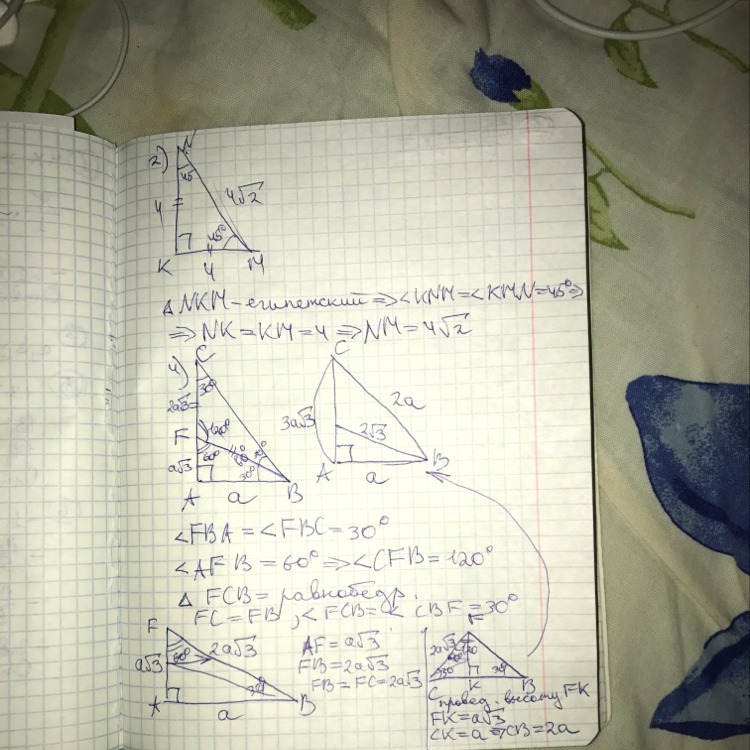 2)
N
45
4
4√2
45°
K
4
M
△ NKM - египетский ⇒ <KNM = <KMN = 45° ⇒
⇒ NK = KM = 4 ⇒ NM = 4√2
4)
C
30°
2a√3
F
120°
60°
a√3
30°
A
a
B
C
3a√3
2a
2√3
A
a
B
<FBA = <FBC = 30°
<AFB = 60° ⇒ <CFB = 120°
△ FCB = равнобедр.
FC = FB, <FCB = <CBF = 30°
F
60°
2a√3
a√3
30°
A
a
B
AF = a√3
FB = 2a√3
FB = FC = 2a√3
F
2a√3
30
30
C
K
B
провед. высоту FK
FK = a√3
CK = a ⇒ CB = 2a